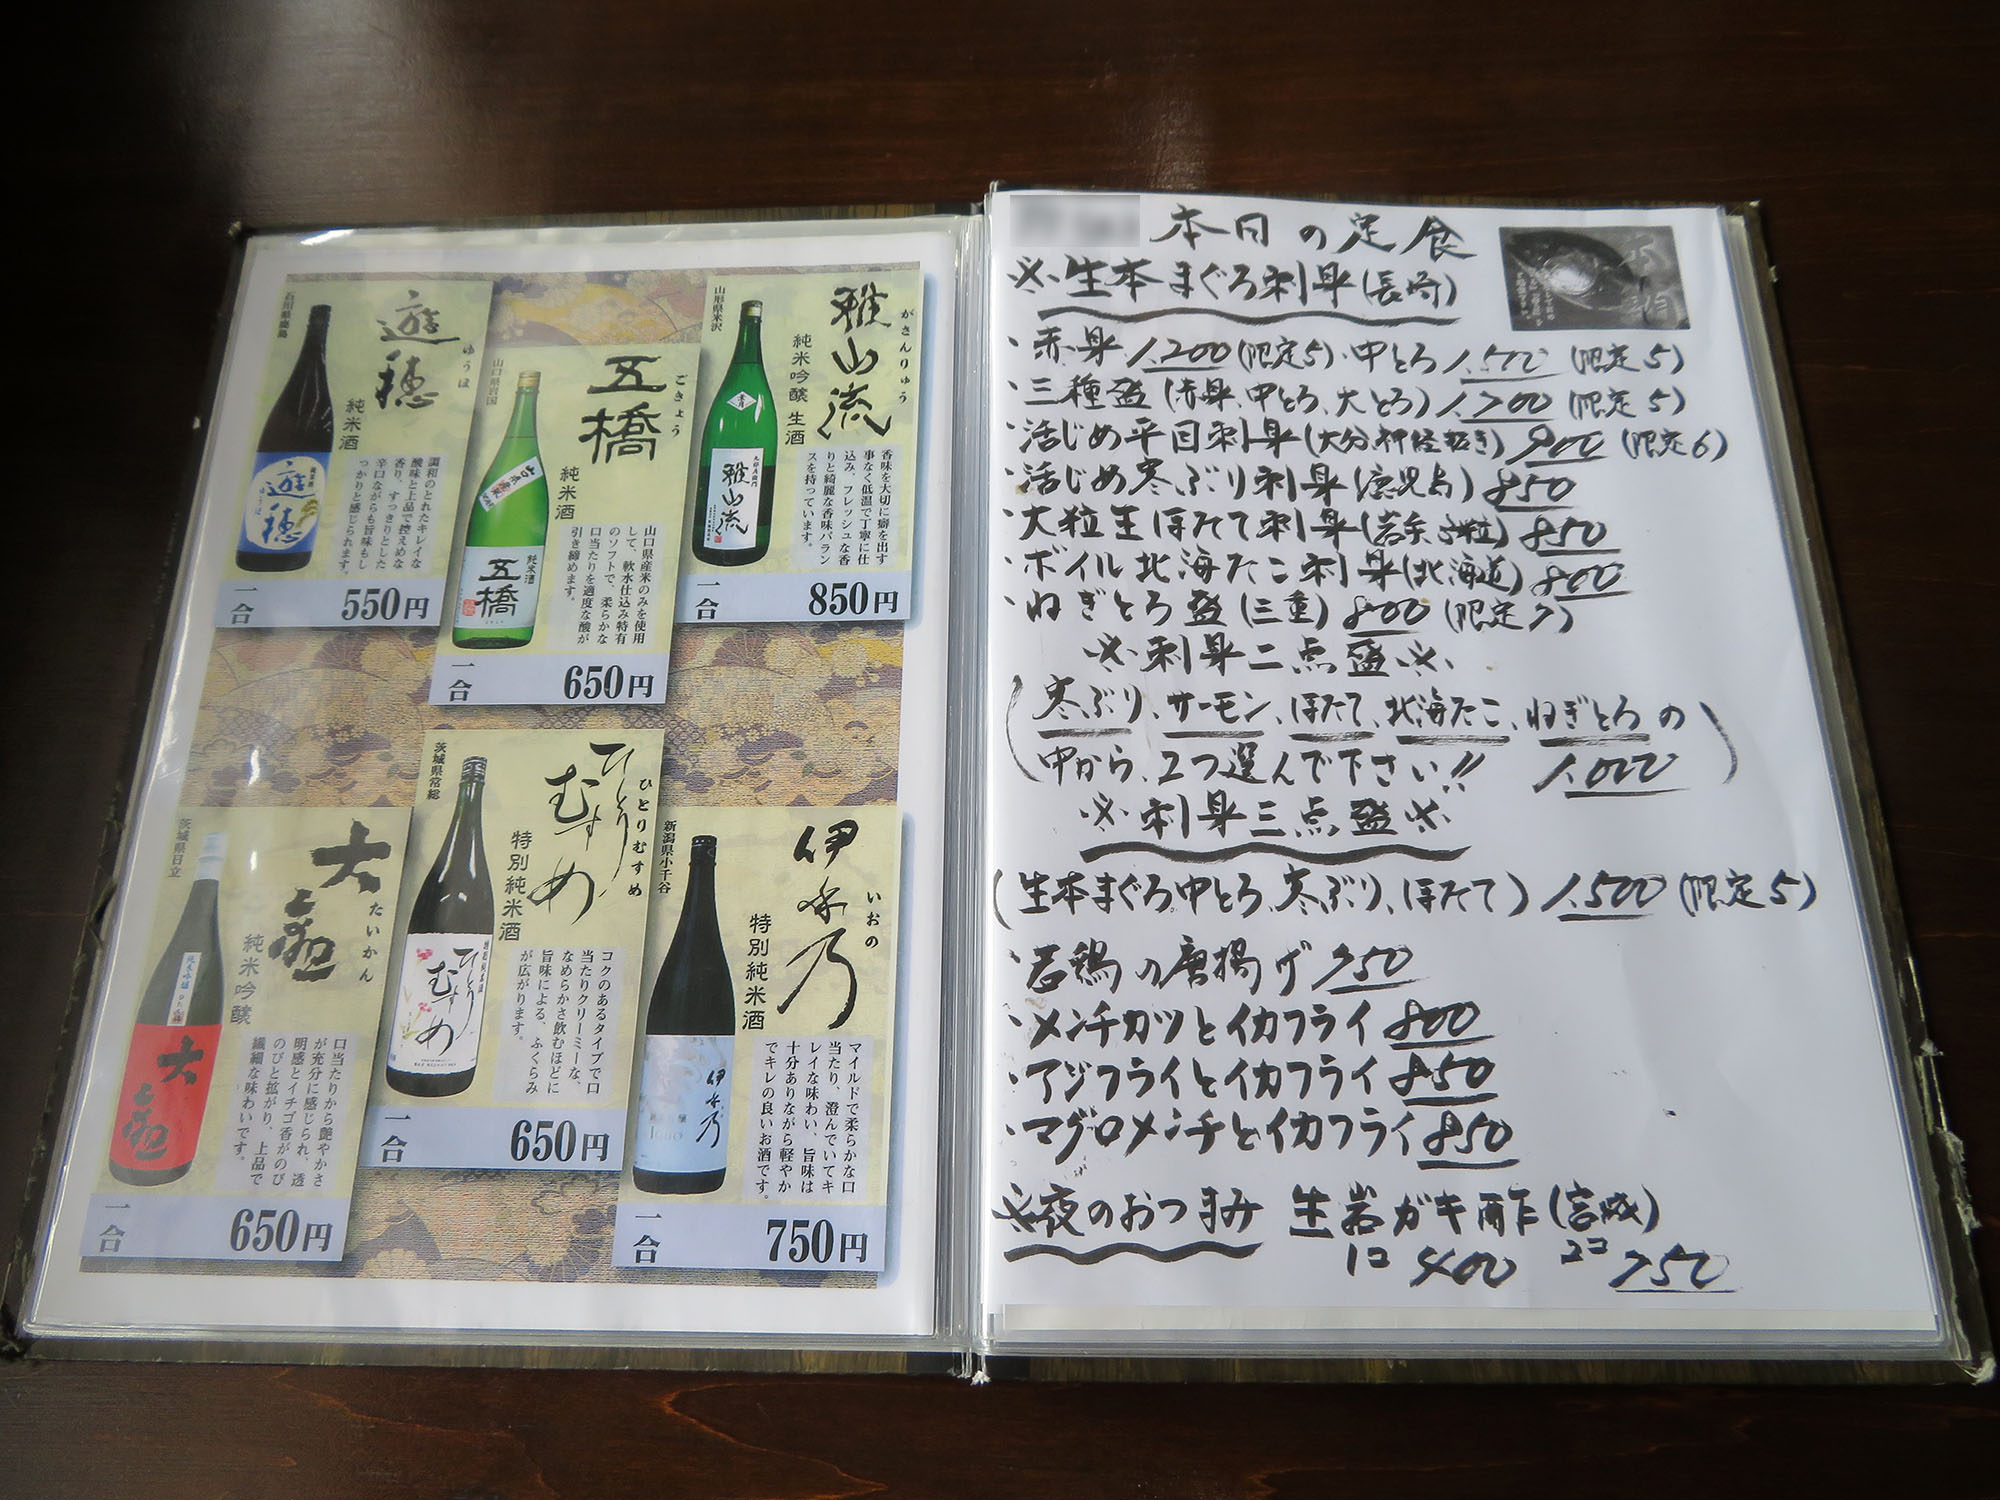 石川県鹿島
遊穂
ゆうほ
純米酒
調和のとれたキレイな
酸味と上品で控えめな
香り、すっきりとした
辛口ながらも旨味もし
っかりと感じられます。
遊穂
一合
550円
山口県岩国
五橋
ごきょう
純米酒
山口県産米のみを使用
して、軟水仕込み特有
のソフトで、柔らかな
口当たりを適度な酸が
引き締めます。
純米酒
五橋
一合
650円
山形県米沢
雅山流
がさんりゅう
純米吟醸 生酒
香味を大切に癖を出す
事なく低温で丁寧に仕
込み、フレッシュな香
りと綺麗な香味バラン
スを持っています。
雅山流
一合
850円
茨城県日立
大観
たいかん
純米吟醸
口当たりから艶やかさ
が充分に感じられ、透
明感とイチゴ香がのび
のびと拡がり、上品で
繊細な味わいです。
純米吟醸
大観
一合
650円
茨城県常総
ひとりむすめ
ひとりむすめ
特別純米酒
コクのあるタイプで口
当たりクリーミーな、
なめらかさ飲むほどに
旨味による、ふくらみ
が広がります。
ひとりむすめ
一合
650円
新潟県小千谷
伊乎乃
いおの
特別純米酒
マイルドで柔らかな口
当たり、澄んでいてキ
レイな味わい、旨味は
十分ありながら軽やか
でキレの良いお酒です。
伊乎乃
一合
750円
本日の定食
※生本まぐろ刺身(長崎)
・赤身 1,200(限定5)・中とろ 1,500 (限定5)
・三種盛(赤身、中とろ、大とろ) 1,700 (限定5)
・活じめ平目刺身(大分 神経抜き) 900 (限定6)
・活じめ寒ぶり刺身(鹿児島) 850
・大粒生ほたて刺身(岩手 5粒) 850
・ボイル北海たこ刺身(北海道) 800
・ねぎとろ盛(三重) 800 (限定7)
※刺身二点盛※
(寒ぶり、サーモン、ほたて、北海たこ、ねぎとろの
中から、2つ選んで下さい!! 1,000)
※刺身三点盛※
(生本まぐろ中とろ、寒ぶり、ほたて) 1,500 (限定5)
・若鶏の唐揚げ 750
・メンチカツとイカフライ 800
・アジフライとイカフライ 850
・マグロメンチとイカフライ 850
※夜のおつまみ 生岩ガキ酢(宮城)
1コ 400 2コ 750